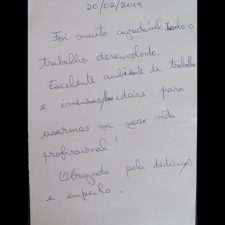 20/02/2019
Foi muito agradável todo o
trabalho desenvolvido.
Excelente ambiente de trabalho
e imensas ideias para
usarmos na nossa vida
profissional!
Obrigada pela dedicação
e empenho.